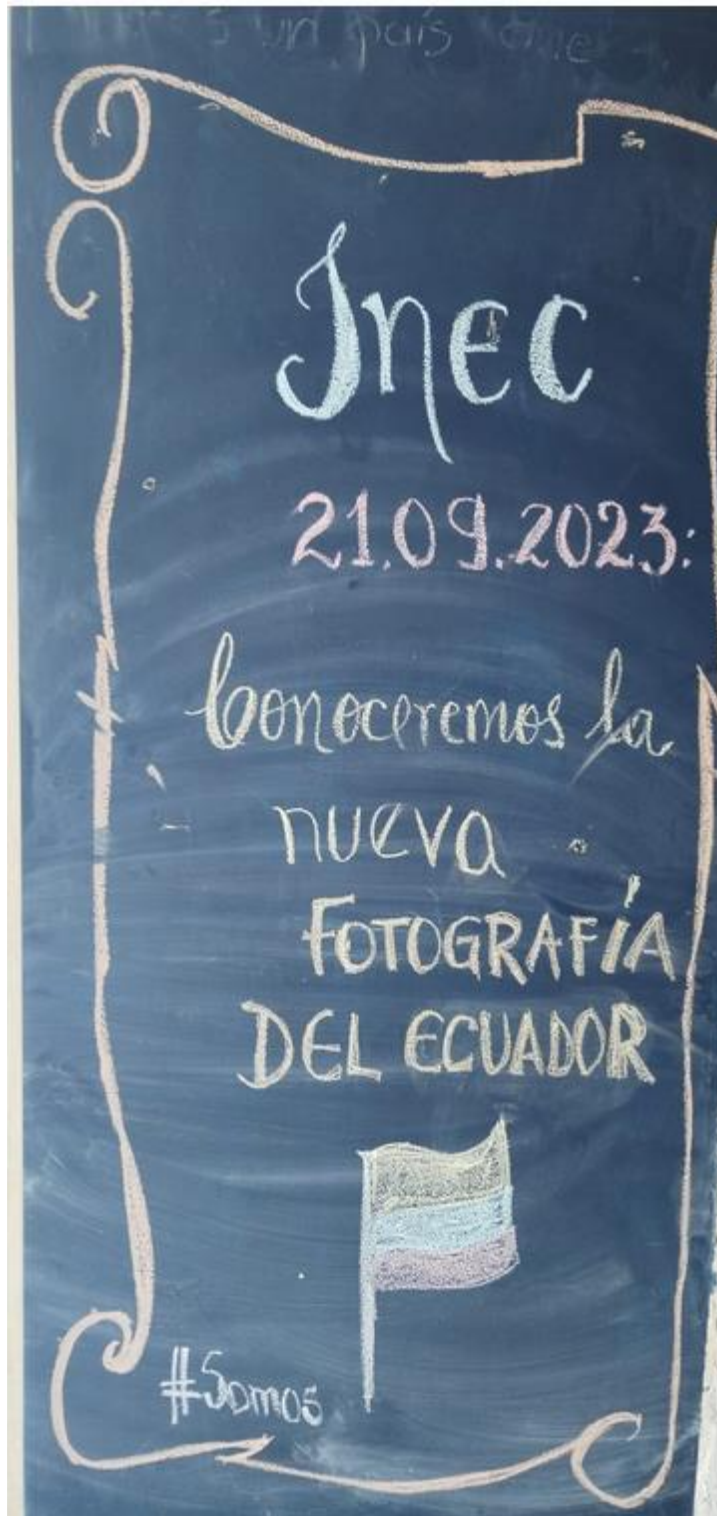 un país
Inec
21.09.2023:
Conoceremos la
nueva
FOTOGRAFÍA
DEL ECUADOR
#Somos